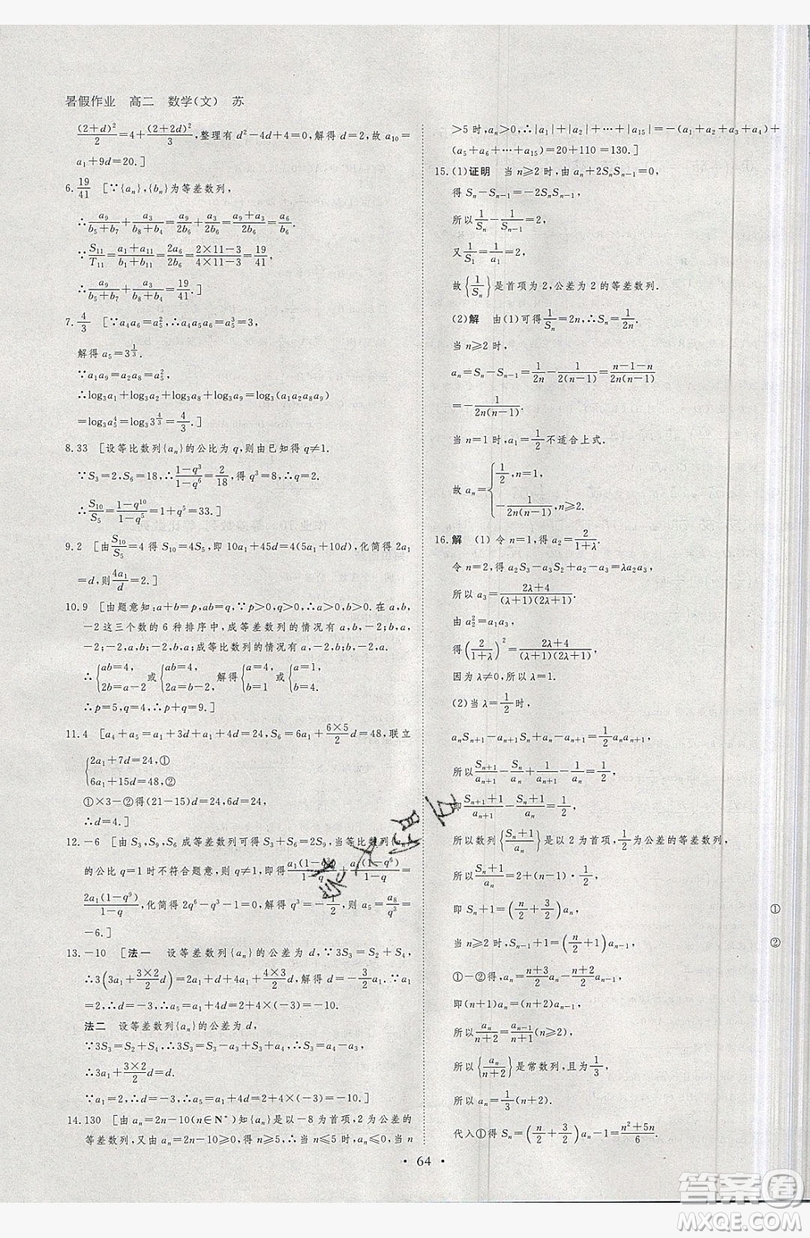 暑假作业 高二 数学(文) 苏
(2+d)²/2=4+(2+2d)²/3,整理有 d²-4d+4=0,解得 d=2,故 a₁₀
=a₁+9d=20.]
6. 19/41 [∵{aₙ},{bₙ}为等差数列,
∴a₉/(b₅+b₇)+a₃/(b₈+b₄)=a₉/(2b₆)+a₃/(2b₆)=(a₉+a₃)/(2b₆)=a₆/b₆.
∵S₁₁/T₁₁=(a₁+a₁₁)/(b₁+b₁₁)=2a₆/2b₆=(2×11-3)/(4×11-3)=19/41,
∴a₆/b₆=19/41.]
7. 4/3 [∵a₄a₆=a₅²,∴a₄a₅a₆=a₅³=3,
解得 a₅=3^(1/3).
∵a₁a₉=a₂a₈=a₅²,
∴log₃a₁+log₃a₂+log₃a₈+log₃a₉=log₃(a₁a₂a₈a₉)
=log₃a₅⁴=log₃3^(4/3)=4/3.]
8.33 [设等比数列{aₙ}的公比为 q,则由已知得 q≠1.
∵S₃=2,S₆=18,∴(1-q³)/(1-q⁶)=2/18,得 q³=8,∴q=2.
∴S₁₀/S₅=(1-q¹⁰)/(1-q⁵)=1+q⁵=33.]
9.2 [由S₁₀/S₅=4得 S₁₀=4S₅,即 10a₁+45d=4(5a₁+10d),化简得 2a₁
=d,则4a₁/d=2.]
10.9 [由题意知:a+b=p,ab=q,∵p>0,q>0,∴a>0,b>0.在 a,b,
-2这三个数的6种排序中,成等差数列的情况有 a,b,-2;b,a,
-2;-2,a,b;-2,b,a;成等比数列的情况有 a,-2,b;b,-2,a.
∴{ab=4,2b=a-2 或{ab=4,2a=b-2 解得{a=4,b=1 或{a=1,b=4.
∴p=5,q=4,∴p+q=9.]
11.4 [a₄+a₅=24,即 2a₁+7d=24,S₆=6a₁+(6×5)/2 d=48,联立
{2a₁+7d=24,①
6a₁+15d=48,②
①×3-②得(21-15)d=24,即 6d=24,
∴d=4.]
12.-6 [由 S₃,S₉,S₆成等差数列可得 S₃+S₆=2S₉,当等比数列{aₙ}
的公比 q=1时不符合题意,则即得a₁(1-q³)/(1-q)+a₁(1-q⁶)/(1-q)=
2a₁(1-q⁹)/(1-q),化简得 2q⁶-q³-1=0(q≠1),解得 q³=-1/2,则 a₈=a₅q³=
-6.]
13.-10 [法一 设等差数列{aₙ}的公差为 d,∵3S₃=S₂+S₄,
∴3(3a₁+(3×2)/2 d)=2a₁+d+4a₁+(4×3)/2 d,解得 d=-3/2 a₁,
∵a₁=2,∴d=-3,∴a₅=a₁+4d=2+4×(-3)=-10.
法二 设等差数列{aₙ}的公差为 d,
∵3S₃=S₂+S₄,∴3S₃=S₃-a₃+S₃+a₄,∴S₃=a₄-a₃,
∴3a₁+(3×2)/2 d=d,
∵a₁=2,∴d=-3,∴a₅=a₁+4d=2+4×(-3)=-10.]
14.130 [由 aₙ=2n-10(n∈N*)知{aₙ}是以-8为首项,2为公差的
等差数列,又由 aₙ=2n-10≥0得 n≥5,∴当 n≤5时,aₙ≤0,当 n
>5时,aₙ>0,∴|a₁|+|a₂|+…+|a₁₅|=-(a₁+a₂+a₃+a₄)+
(a₅+a₆+…+a₁₅)=20+110=130.]
15.(1)证明 当 n≥2时,由 aₙ+2SₙSₙ₋₁=0,
得 Sₙ-Sₙ₋₁=-2SₙSₙ₋₁,
所以1/Sₙ-1/Sₙ₋₁=2,
又1/S₁=1/a₁=2,
故{1/Sₙ}是首项为2,公差为2的等差数列.
(2)解 由(1)可得1/Sₙ=2n,∴Sₙ=1/(2n).
当 n≥2时,
aₙ=Sₙ-Sₙ₋₁=1/(2n)-1/(2(n-1))=(n-1-n)/(2n(n-1))
=-1/(2n(n-1)).
当 n=1时,a₁=1/2不适合上式.
故 aₙ={1/2,n=1,
-1/(2n(n-1)),n≥2.
16.解 (1)令 n=1,得 a₂=2/(1+λ).
令 n=2,得 a₂S₃-a₃S₂+a₂-a₃=λa₂a₃,
所以 a₃=(2λ+4)/((λ+1)(2λ+1)).
由 a₂²=a₁a₃,
得(2/(1+λ))²=(2λ+4)/((λ+1)(2λ+1)),
因为 λ≠0,所以 λ=1.
(2)当 λ=1/2时,
aₙSₙ₊₁-aₙ₊₁Sₙ+aₙ-aₙ₊₁=1/2 aₙaₙ₊₁,
所以Sₙ₊₁/aₙ₊₁-Sₙ/aₙ+1/aₙ₊₁-1/aₙ=1/2,
即(Sₙ₊₁+1)/aₙ₊₁-(Sₙ+1)/aₙ=1/2,
所以数列{(Sₙ+1)/aₙ}是以2为首项,1/2为公差的等差数列,
所以(Sₙ+1)/aₙ=2+(n-1)·1/2,
即 Sₙ+1=(n/2+3/2)aₙ, ①
当 n≥2时,Sₙ₋₁+1=(n/2+1)aₙ₋₁, ②
①-②得,aₙ=(n+3)/2 aₙ-(n+2)/2 aₙ₋₁,
即(n+1)aₙ=(n+2)aₙ₋₁,
所以aₙ/(n+2)=aₙ₋₁/(n+1)(n≥2),
所以{aₙ/(n+2)}是常数列,且为1/3,
所以 aₙ=1/3(n+2).
代入①得 Sₙ=(n/2+3/2)aₙ-1=(n²+5n)/6.
• 64 •
答案圈
MXQE.COM